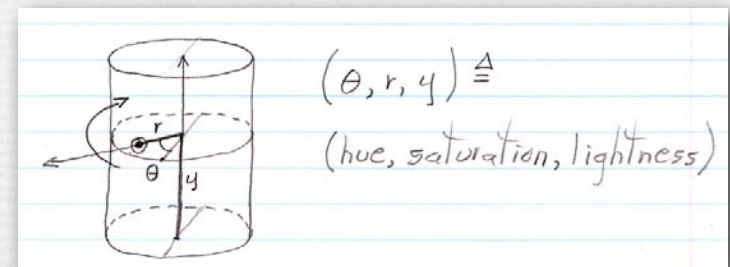 (θ, r, y) ≜
(hue, saturation, lightness)
r
θ
y